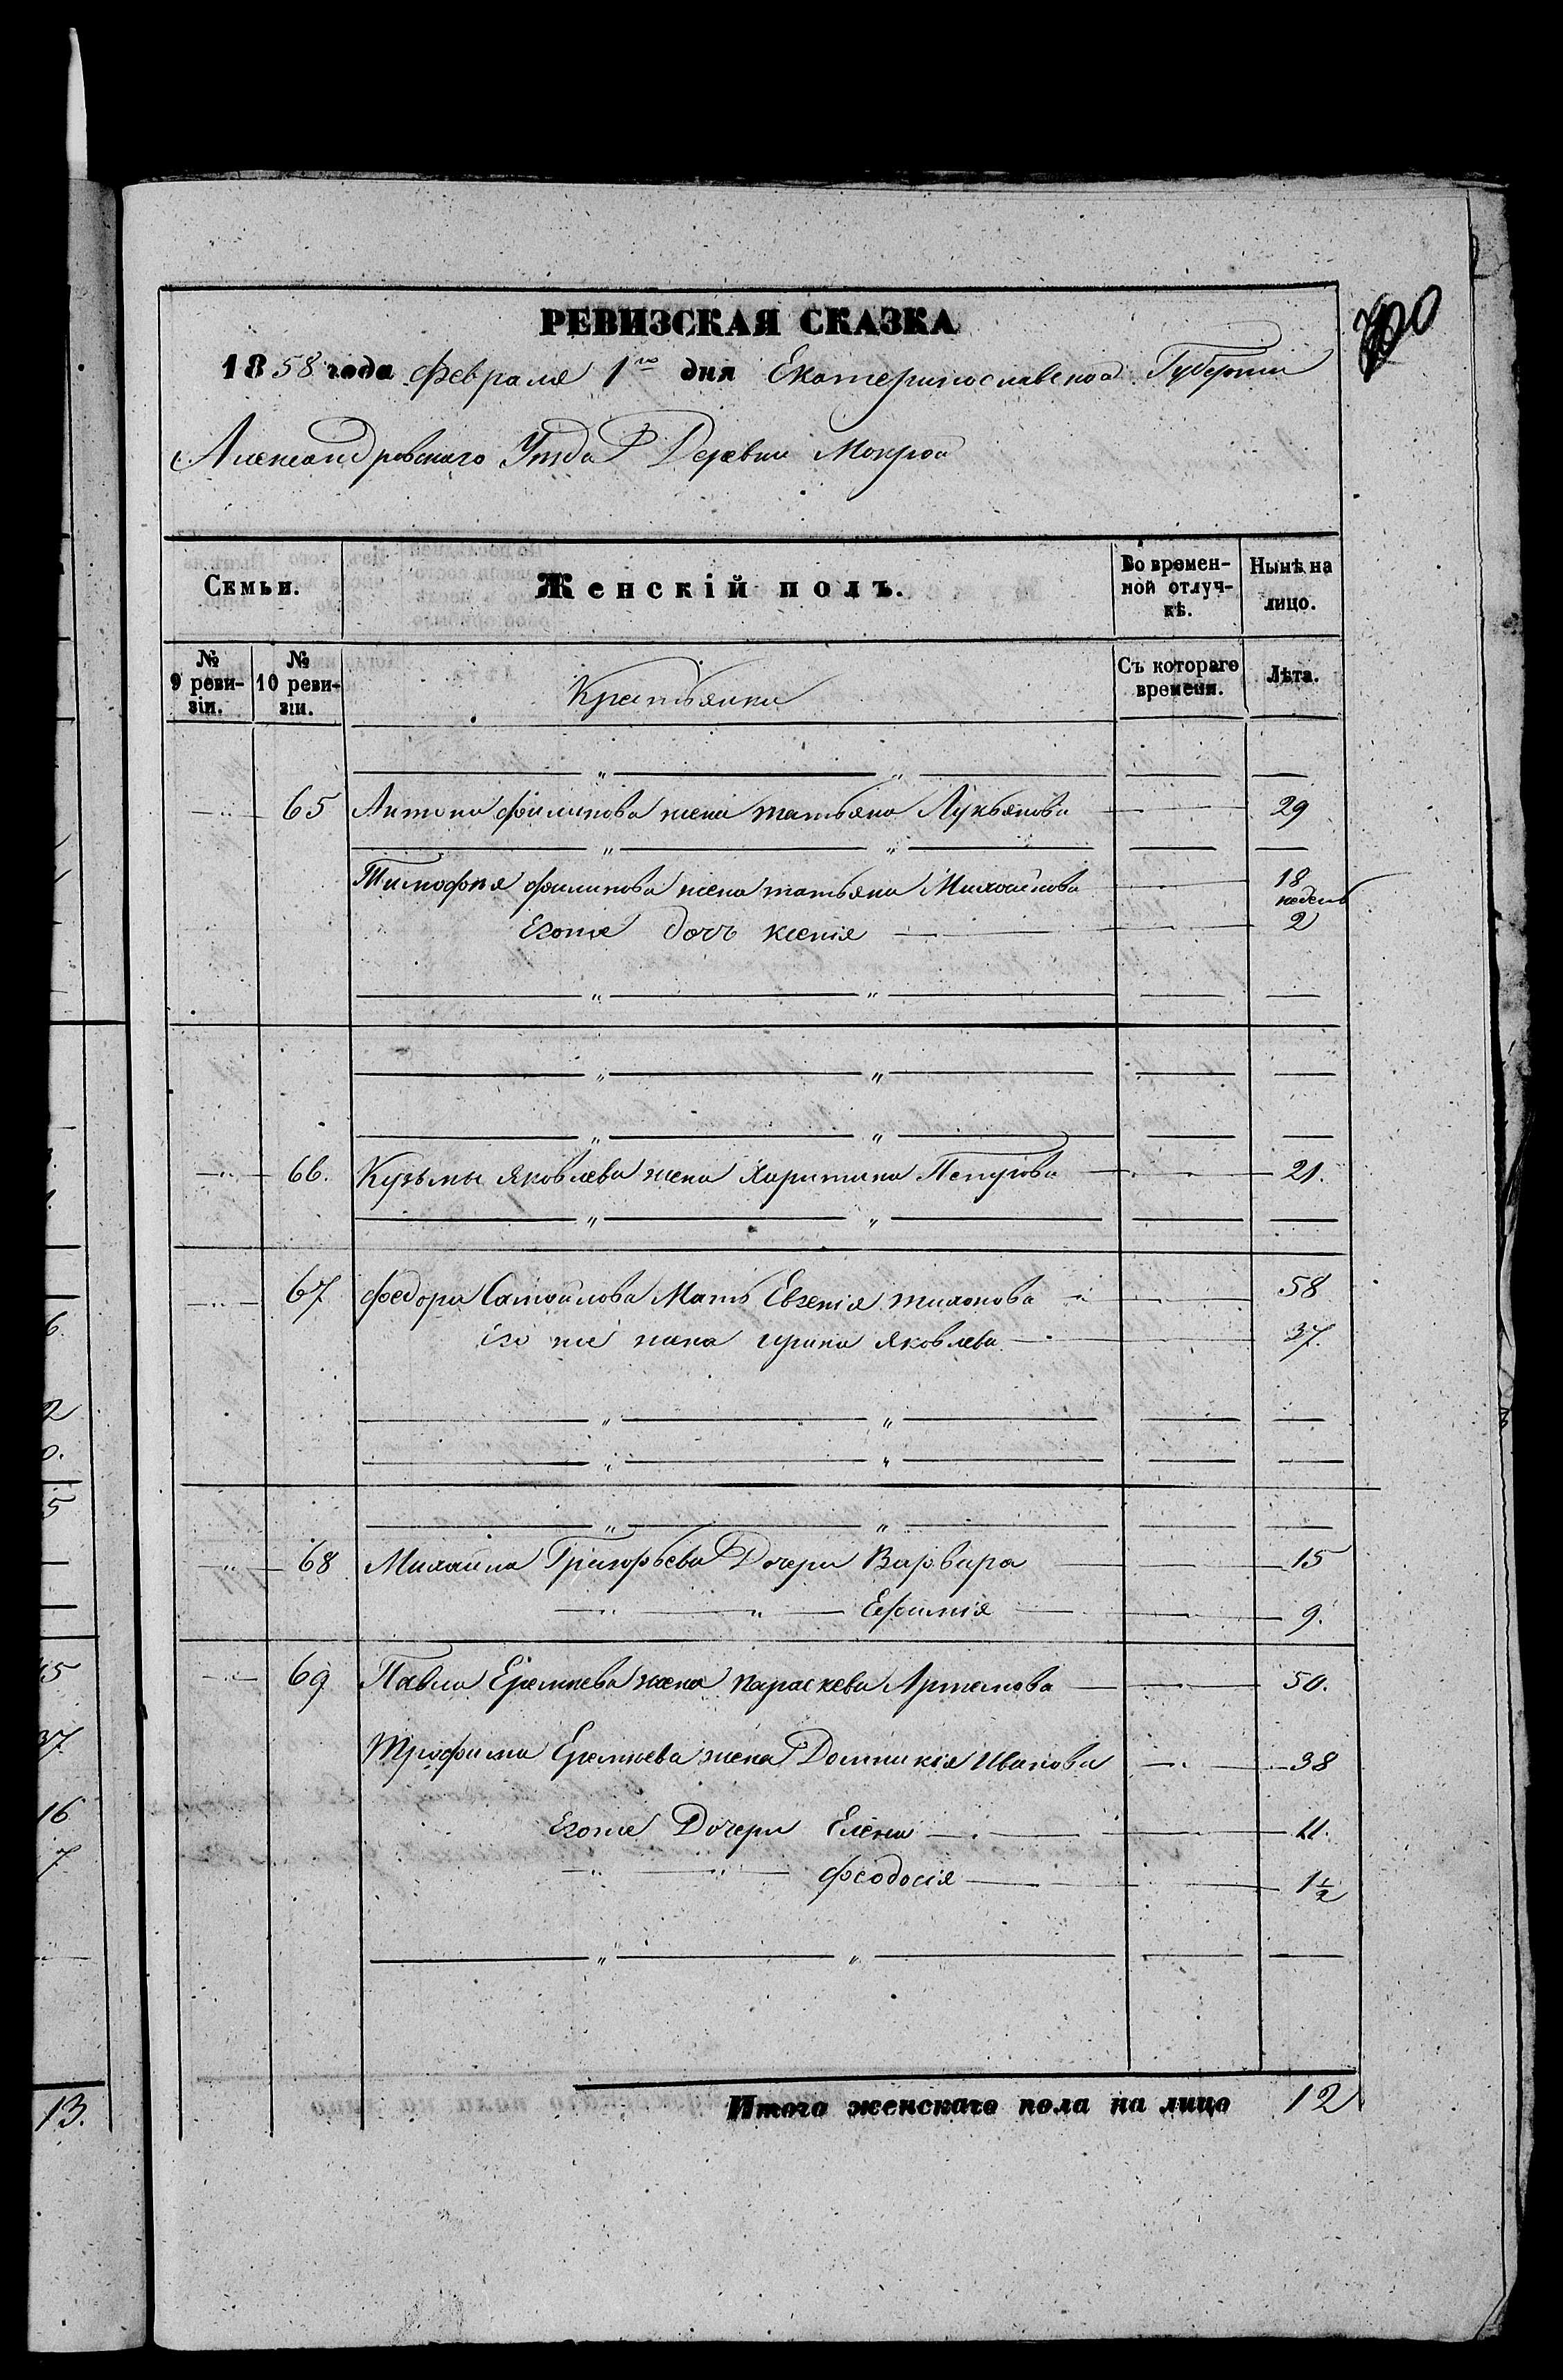 РЕВИЗСКАЯ СКАЗКА
1858 года Февраля 1го дня Екатеринославской Губернии
Александровскаго Уезда Деревни Мокрой
Семьи. Женскій полъ. Во времен-ной отлуч-кѣ. Нынѣ на лицо.
№ 9 реви-зіи. № 10 реви-зіи. Крестьянки Съ котораго времени. Лѣта.
65 Антона Филипова жена татьяна Лукьянова 29
Тимофѣя филипова жена татьяна Михайлова 18
недель
Егоже дочь ксенія 2
66. Кузьмы яковлева жена Харитина Петрова 21.
67 федора Самойлова Мать Евгенія тихонова 58
его же жена ирина яковлева 37.
68 Михайла Григорьева Дочери Варвара 15
" " Ефимія 9.
69 Павла Еремиева жена параскева Артемова 50.
Трофима Еремиева жена Домникія Иванова 38
Егоже Дочери Елена 11.
" " феодосія 1 1/2
Итого женскаго пола на лицо 12
6.
2
0.
5
15
37.
16
7
13.